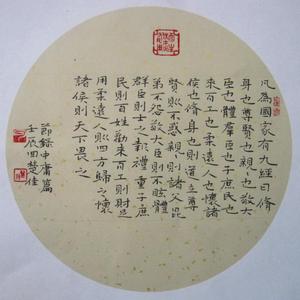 凡為國家有九經曰脩
身也尊賢也親〻也敬大
臣也體羣臣也子庶民也
來百工也柔遠人也懷諸
侯也脩身也則道立尊
賢則不惑親〻則諸父昆
弟不怨敬大臣則不眩體
群臣則士之報禮重子庶
民則百姓勸來百工則財足
用柔遠人則四方歸之懷
諸侯則天下畏之
節錄中庸篇
壬辰四楚佳